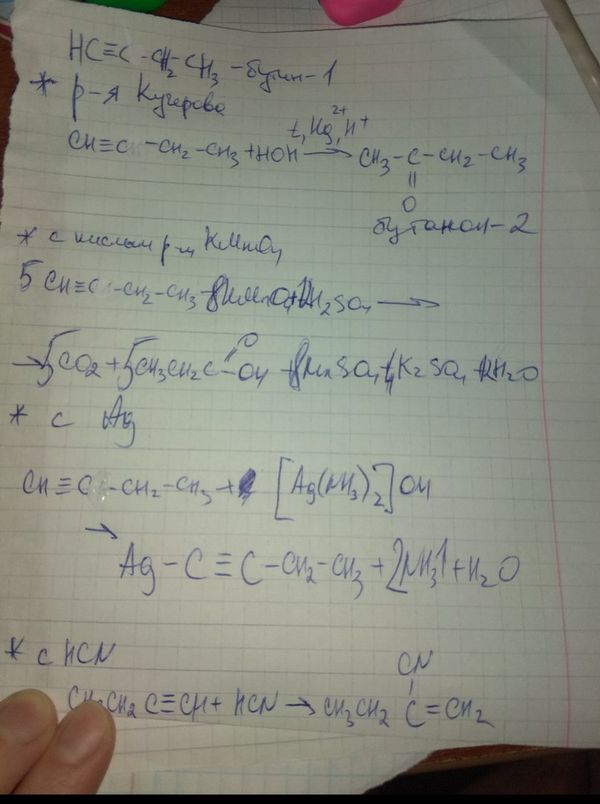 HC≡C-CH₂-CH₃ - бутин-1
* р-я Кучерова
CH≡C-CH₂-CH₃ + HOH → t, Hg²⁺, H⁺ CH₃-C-CH₂-CH₃
||
O
бутанон-2
* с кислым р-м KMnO₄
5 CH≡C-CH₂-CH₃ + 8KMnO₄ + 12H₂SO₄ →
→ 5CO₂ + 5CH₃CH₂C=O OH + 8MnSO₄ + 4K₂SO₄ + 12H₂O
* с Ag
CH≡C-CH₂-CH₃ + [Ag(NH₃)₂]OH
→
Ag-C≡C-CH₂-CH₃ + 2NH₃↑ + H₂O
* с HCN
CN
CH₃CH₂C≡CH + HCN → CH₃CH₂C=CH₂